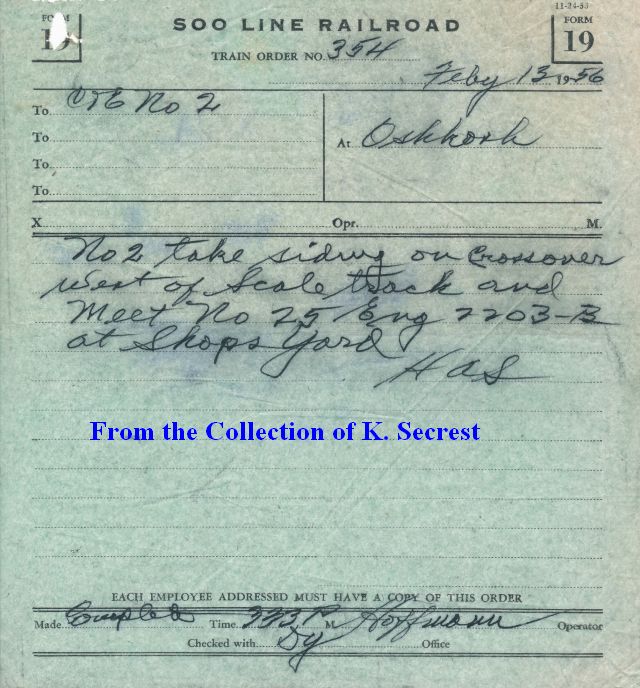 11-24-53
FORM 19
SOO LINE RAILROAD
FORM 19
TRAIN ORDER NO. 354
Feby 13 1956
To C&E No 2
To
At Oshkosh
To
To
X Opr. M.
No 2 take siding on Crossover
west of Scale track and
Meet No 25 Eng 2203-B
at Shops Yard
HAS
From the Collection of K. Secrest
EACH EMPLOYEE ADDRESSED MUST HAVE A COPY OF THIS ORDER
Made Complete Time 333 P M. Hoffmann Operator
Checked with Dy Office